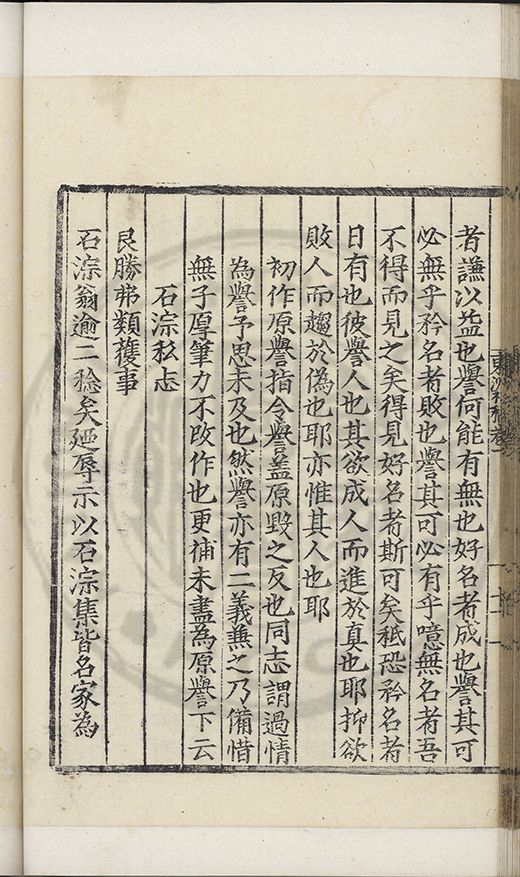 者謙以益也譽何能有無也好名者成也譽其可
必無乎矜名者敗也譽其可必有乎噫無名者吾
不得而見之矣得見好名者斯可矣秪恐矜名者
日有也彼譽人也其欲成人而進於真也耶抑欲
敗人而趨於偽也耶亦惟其人也耶
初作原譽指令譽盖原毀之反也同志謂過情
為譽予思未及也然譽亦有二義兼之乃備惜
無子厚筆力不改作也更補未盡為原譽下云
石淙私志
艮勝弗類穫事
石淙翁逾二稔矣廼辱示以石淙集皆名家為